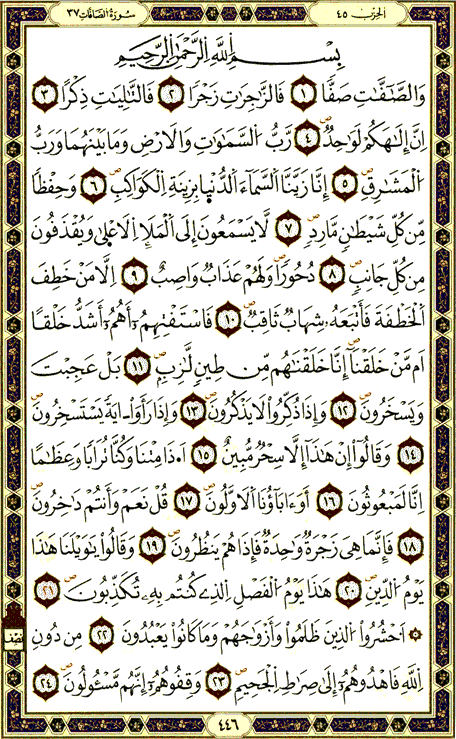 سُورَةُ الصَّافَّات ٣٧
الحِزْب ٤٥
بِسْمِ اللَّهِ الرَّحْمَٰنِ الرَّحِيمِ
وَالصَّٰٓفَّٰتِ صَفّٗا ١ فَالزَّٰجِرَٰتِ زَجْرٗا ٢ فَالتَّٰلِيَٰتِ ذِكْرًا ٣
اِنَّ إِلَٰهَكُمْ لَوَٰحِدٞ ٤ رَّبُّ السَّمَٰوَٰتِ وَالَارْضِ وَمَا بَيْنَهُمَا وَرَبُّ
الْمَشَٰرِقِ ٥ إِنَّا زَيَّنَّا السَّمَآءَ الدُّنْيَا بِزِينَةِ الْكَوَاكِبِ ٦ وَحِفْظٗا
مِّن كُلِّ شَيْطَٰنٖ مَّارِدٖ ٧ لَّا يَسْمَعُونَ إِلَى الْمَلَإِ الَاعْلَىٰ وَيُقْذَفُونَ
مِن كُلِّ جَانِبٖ ٨ دُحُورٗا وَلَهُمْ عَذَابٞ وَاصِبٌ ٩ اِلَّا مَنْ خَطِفَ
الْخَطْفَةَ فَأَتْبَعَهُۥ شِهَابٞ ثَاقِبٞ ١٠ فَاسْتَفْتِهِمُۥٓ أَهُمُۥٓ أَشَدُّ خَلْقًا
اَم مَّنْ خَلَقْنَآ إِنَّا خَلَقْنَٰهُم مِّن طِينٖ لَّازِبٖ ١١ بَلْ عَجِبْتَ
وَيَسْخَرُونَ ١٢ وَإِذَا ذُكِّرُواْ لَا يَذْكُرُونَ ١٣ وَإِذَا رَأَوَاْ ايَةٗ يَسْتَسْخِرُونَ
١٤ وَقَالُوٓاْ إِنْ هَٰذَآ إِلَّا سِحْرٞ مُّبِينٌ ١٥ اَ۟ذَا مِتْنَا وَكُنَّا تُرَابٗا وَعِظَٰمًا
اِنَّا لَمَبْعُوثُونَ ١٦ أَوَءَابَآؤُنَا الَاوَّلُونَ ١٧ قُلْ نَعَمْ وَأَنتُمْ دَٰخِرُونَ
١٨ فَإِنَّمَا هِيَ زَجْرَةٞ وَٰحِدَةٞ فَإِذَا هُمْ يَنظُرُونَ ١٩ وَقَالُواْ يَٰوَيْلَنَا هَٰذَا
يَوْمُ الدِّينِ ٢٠ هَٰذَا يَوْمُ الْفَصْلِ الذِے كُنتُم بِهِۦ تُكَذِّبُونَ ٢١
۞ اَحْشُرُواْ الذِينَ ظَلَمُواْ وَأَزْوَٰجَهُمْ وَمَا كَانُواْ يَعْبُدُونَ ٢٢ مِن دُونِ
اِللَّهِ فَاهْدُوهُمُۥٓ إِلَىٰ صِرَٰطِ الْجَحِيمِ ٢٣ وَقِفُوهُمُۥٓ إِنَّهُم مَّسْـُٔولُونَ ٢٤
نصف
٤٤٦